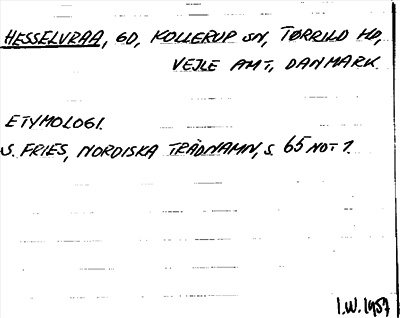 HESSELVRAA, GD, KOLLERUP SN, TØRRILD HD,
VEJLE AMT, DANMARK.
ETYMOLOGI.
S. FRIES, NORDISKA TRÄDNAMN, S. 65 NOT 1.
I.W. 1957